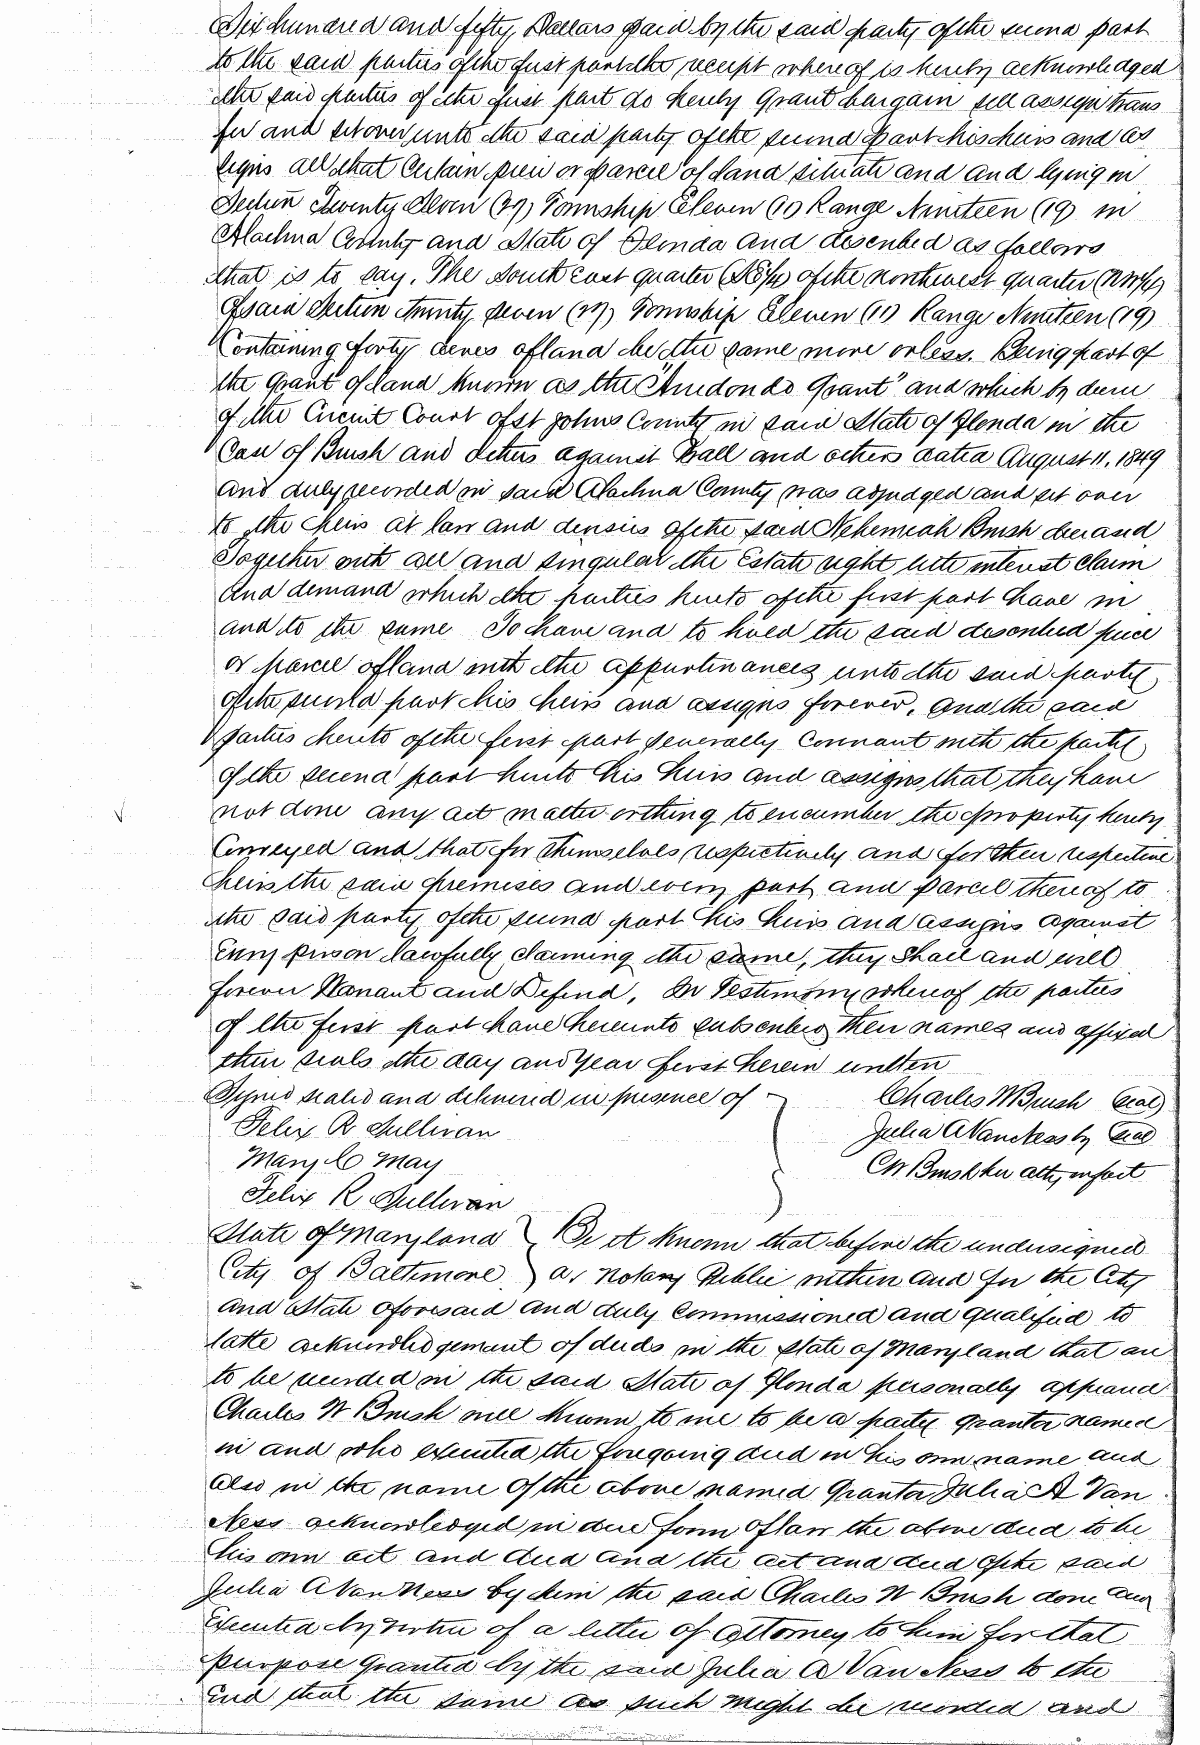 Six hundred and fifty Dollars paid by the said party of the second part
to the said parties of the first part the receipt whereof is hereby acknowledged
the said parties of the first part do hereby Grant bargain sell assign trans
fer and set over unto the said party of the second part his heirs and as
signs all that Certain piece or parcel of land situate and and lying in
Section Twenty Seven (27) Township Eleven (11) Range Nineteen (19) in
Alachua County and State of Florida and described as follows
that is to say. The South east quarter (SE/4) of the northwest quarter (NW/4)
of said Section Twenty seven (27) Township Eleven (11) Range Nineteen (19)
Containing forty acres of land be the same more or less. Being part of
the Grant of land known as the "Arredondo Grant" and which by decree
of the Circuit Court of St Johns County in said State of Florida in the
Case of Brush and others against Hall and others dated August 11, 1849
and duly recorded in said Alachua County was adjudged and set over
to the heirs at law and devisees of the said Nehemiah Brush deceased
Together with all and singular the Estate right title interest Claim
and demand which the parties hereto of the first part have in
and to the same To have and to hold the said described piece
or parcel of land with the appurtenances unto the said party
of the second part his heirs and assigns forever, and the said
parties hereto of the first part severally covenant with the party
of the second part hereto his heirs and assigns that they have
not done any act matter or thing to encumber the property hereby
Conveyed and that for themselves respectively and for their respective
heirs the said premises and every part and parcel thereof to
the said party of the second part his heirs and assigns against
every person lawfully claiming the same, they shall and will
forever Warrant and Defend, In Testimony whereof the parties
of the first part have hereunto subscribed their names and affixed
their seals the day and year first herein written
Signed sealed and delivered in presence of Charles W Brush (seal)
Felix R Sullivan Julia A Van Ness by (seal)
Mary C May CW Brush her atty in fact
Felix R Sullivan
State of Maryland Be it known that before the undersigned
City of Baltimore a Notary Public within and for the City
and State aforesaid and duly Commissioned and qualified to
take acknowledgement of deeds in the State of Maryland that are
to be recorded in the said State of Florida personally appeared
Charles W Brush well known to me to be a party grantor named
in and who executed the foregoing deed in his own name and
also in the name of the above named Grantor Julia A Van
Ness acknowledged in due form of law the above deed to be
his own act and deed and the act and deed of the said
Julia A Van Ness by him the said Charles W Brush done and
Executed by virtue of a letter of attorney to him for that
purpose granted by the said Julia A Van Ness to the
End that the same as such might be recorded and